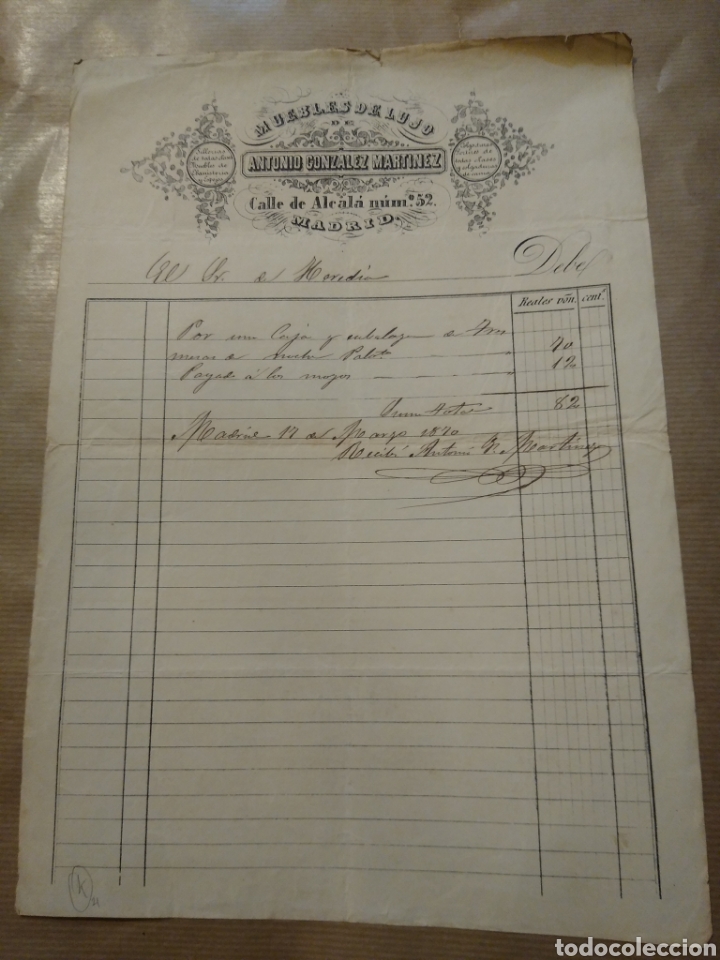 MUEBLES DE LUJO
DE
ANTONIO GONZALEZ MARTINEZ
Calle de Alcalá núm.º 52.
MADRID.
El Sr. de Heredia
Debe
Reales vón. cent.s
Por una Caja y embalage de dos
mesas de noche 70
Pagado á los mozos 12
Suma total 82
Madrid 17 de Marzo 1870
Recibí Antonio G. Martinez
K
todocoleccion